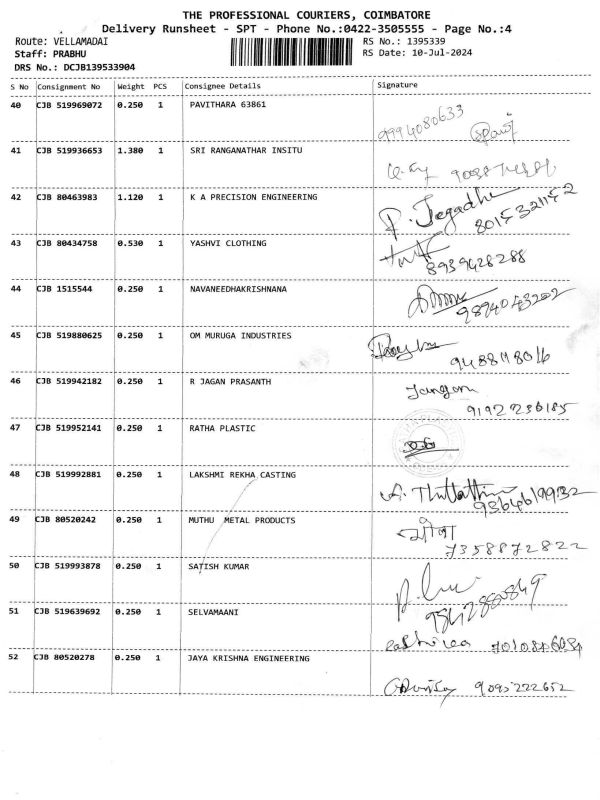 THE PROFESSIONAL COURIERS, COIMBATORE
Delivery Runsheet - SPT - Phone No.:0422-3505555 - Page No.:4
Route: VELLAMADAI RS No.: 1395339
Staff: PRABHU RS Date: 10-Jul-2024
DRS No.: DCJB139533904
S No Consignment No Weight PCS Consignee Details Signature
40 CJB 519969072 0.250 1 PAVITHARA 63861
9994080633
41 CJB 519936653 1.380 1 SRI RANGANATHAR INSITU
42 CJB 80463983 1.120 1 K A PRECISION ENGINEERING
P. Jegadha
8015321152
43 CJB 80434758 0.530 1 YASHVI CLOTHING
8939428288
44 CJB 1515544 0.250 1 NAVANEEDHAKRISHNANA
9894043202
45 CJB 519880625 0.250 1 OM MURUGA INDUSTRIES
46 CJB 519942182 0.250 1 R JAGAN PRASANTH
47 CJB 519952141 0.250 1 RATHA PLASTIC
48 CJB 519992881 0.250 1 LAKSHMI REKHA CASTING
49 CJB 80520242 0.250 1 MUTHU METAL PRODUCTS
7358872822
50 CJB 519993878 0.250 1 SATISH KUMAR
51 CJB 519639692 0.250 1 SELVAMAANI
52 CJB 80520278 0.250 1 JAYA KRISHNA ENGINEERING